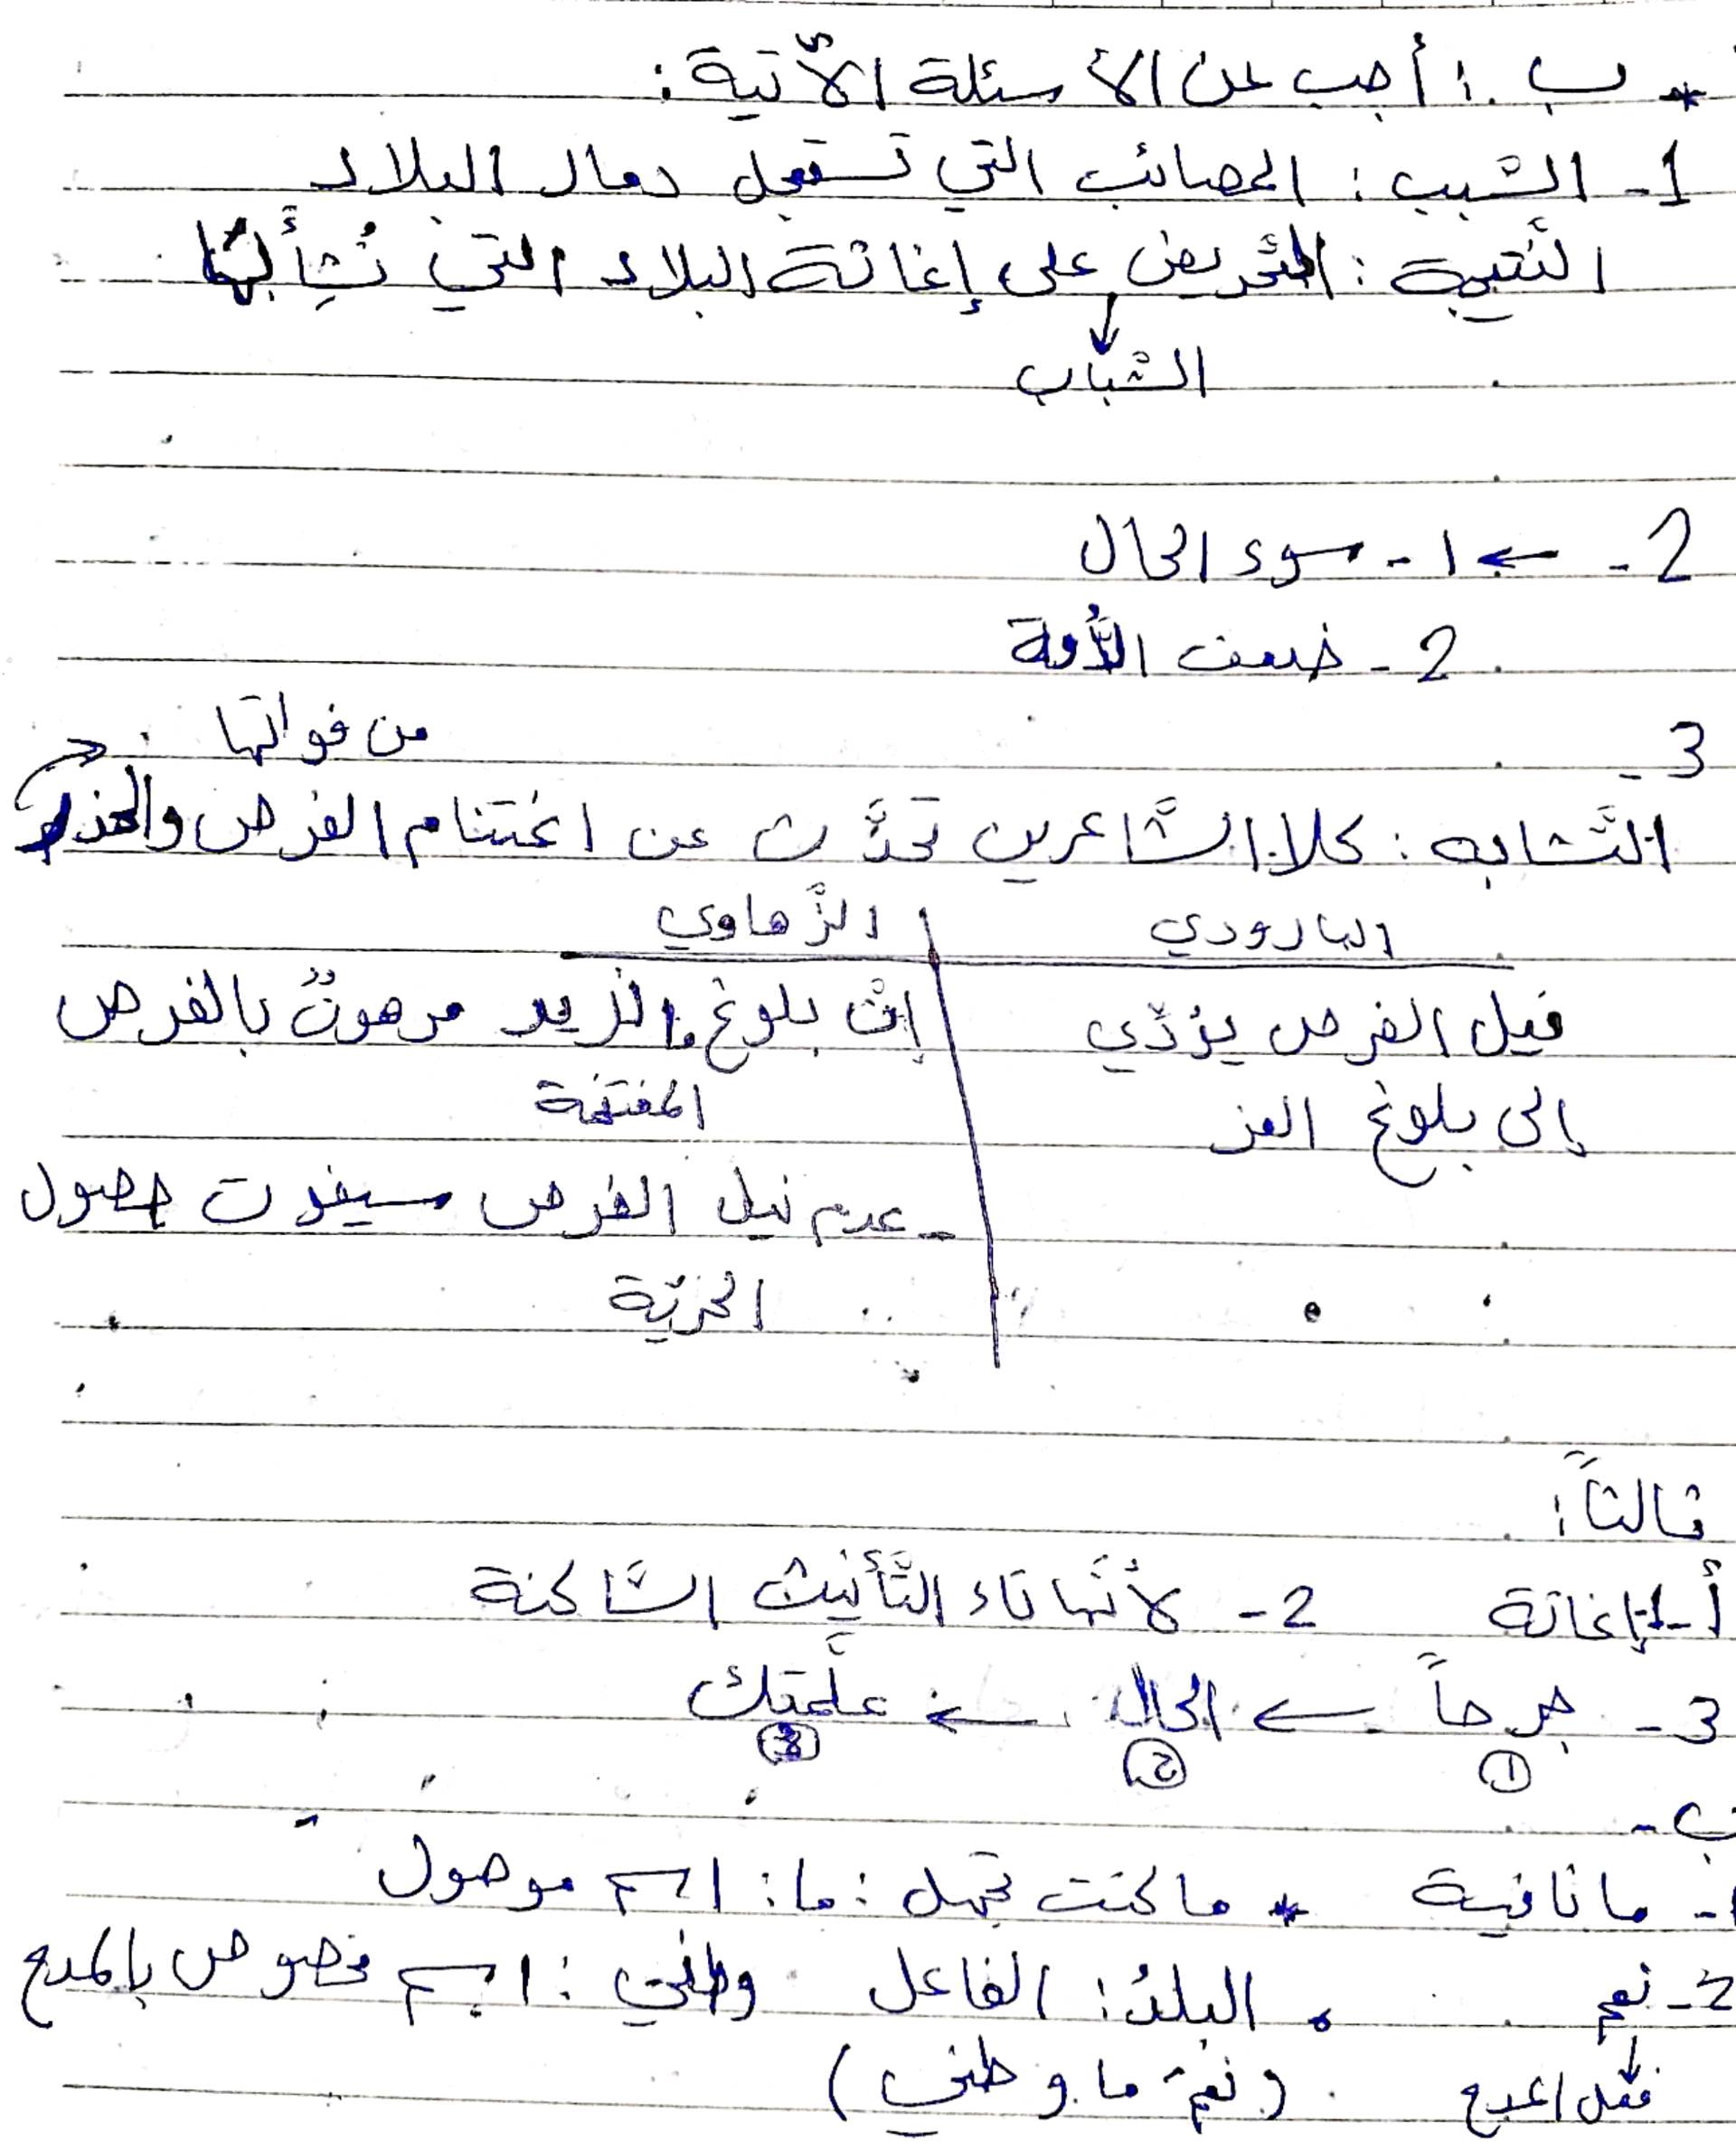 * ب : أجب عن الأسئلة الآتية :
1- السّبب : المصائب التي تستعجل دمار البلاد
النّتيجة : التّحريض على إغاثة البلاد التي نُشِأ بها
↓
الشّباب
2- ← 1- سوء الحال
2- ضعف الأُمة
3- من فواتها
التّشابه : كلا الشّاعرين تحدَّث عن اغتنام الفرص والحذر
البارودي | الزّهاوي
نيل الفرص يؤدّي | إنّ بلوغ المزيد مرهونٌ بالفرص
إلى بلوغ العز | المغتنمة
- عدم نيل الفرص سيفوت حصول
الحريّة
ثالثاً :
أ- 1- إغاثة 2- لأنّها تاء التَّأنيث السَّاكنة
3- جرحاً ← الحال ← علّمتك
① ② ③
ب-
1- ما نافية * ما كنت تجهل : ما : اسم موصول
2- نعم . البلدُ : الفاعل وطني : اسم مخصوص بالمدح
↓
فعل المدح (نعمَ ما وطني)